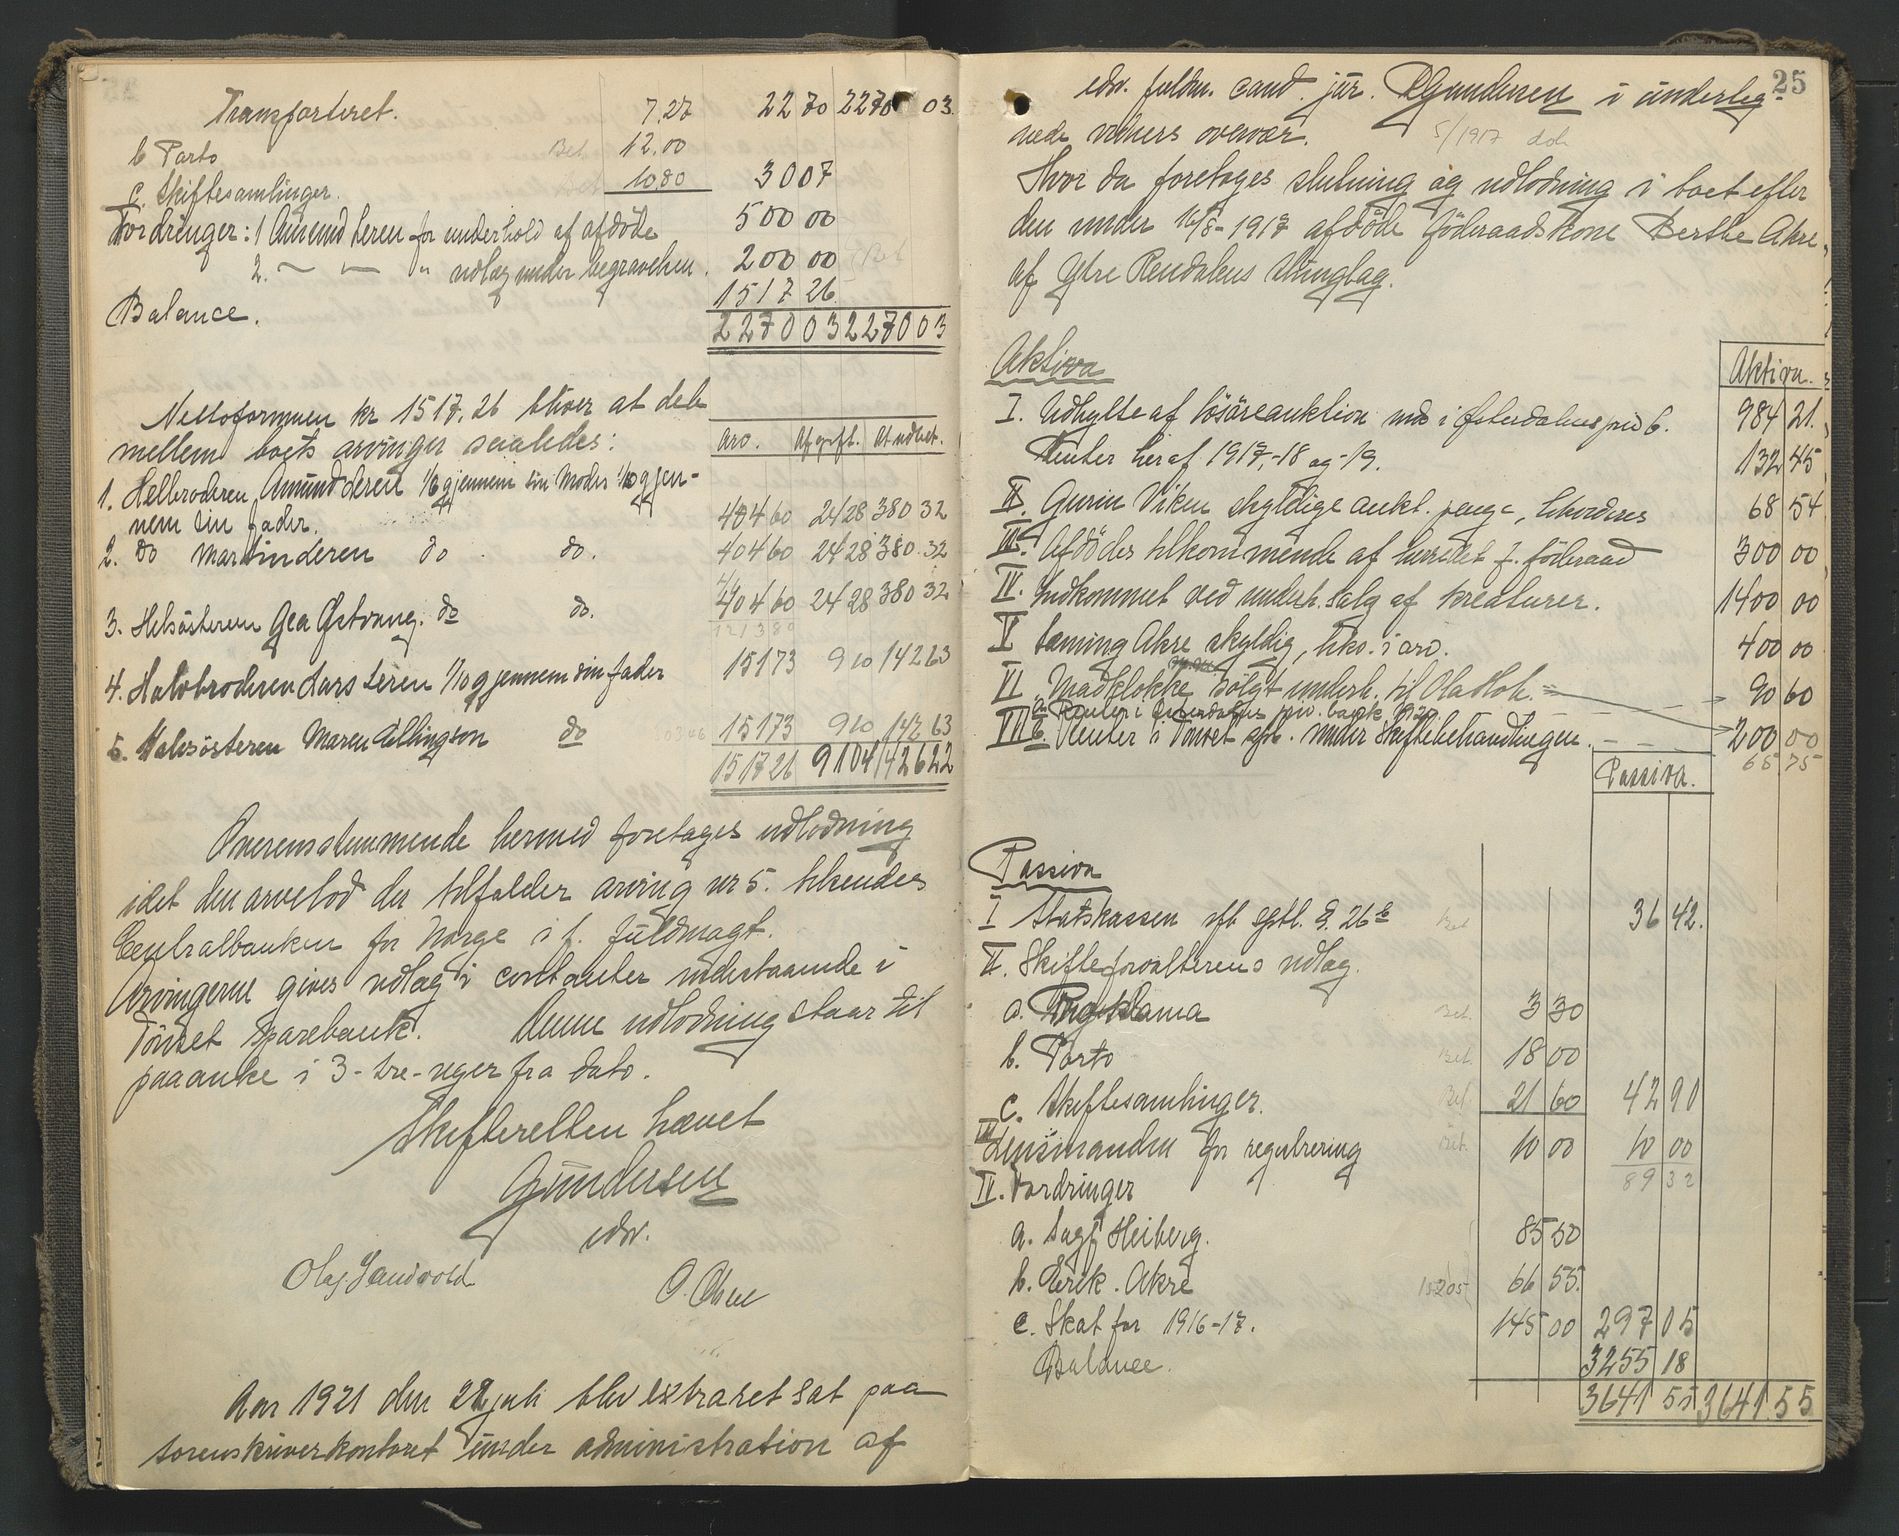 Transporteret. 7.27 22 70 2270 03.
b Porto Bet. 12.00
c. Skiftesamlinger. Bet 10.80 30 07
Fordringer: 1 Amund Øeren for underhold af afdøde 500 00
2. — — " udlæg under begravelsen. 200 00
1517 26
Balance. 2270 03 2270 03
Nettoformuen kr 1517.26 bliver at dele
mellem boets arvinger saaledes: Arv. Afgift. At udbet.
1. Helbroderen Amund Øeren 1/6 gjennem sin Moder 1/10 gjen-
nem sin fader. 404 60 24 28 380 32
2. do Martin Øeren do do. 404 60 24 28 380 32
3. Helsøsteren Gea Østvang. do do. 404 60 24 28 380 32
1213 80
4. Halvbroderen Lars Øeren 1/10 gjennem sin fader 151 73 9 10 142 63
5. Halvsøsteren Maren Ellingson do 151 73 9 10 142 63
1517 26 91 04 1426 22
Overensstemmende hermed foretages udlodning
idet den arvelod der tilfalder arving nr 5. tilsendes
Centralbanken for Norge i f. fuldmagt.
Arvingerne gives udlæg i contanter indestaaende i
Tønset Sparebank. Denne udlodning staar til
paaanke i 3-tre-uger fra dato.
Skifteretten hævet
Gundersen
edsv.
Olaf Sandvold O. Øien
Aar 1921 den 22 juli blev extraret sat paa
sorenskriverkontoret under administration af
25
edsv. fuldm. cand. jur. Gundersen i underteg-
nede vidners overvær. 5/1917 dok
Hvor da foretages slutning og udlodning i boet efter
den under 16/8-1917 afdøde føderaadskone Berthe Akre
af Ytre Rendalens thinglag.
Aktiva Aktiva.
I. Udbytte af løsøreauktion inds i Østerdalens priv b. 984 21.
Renter heraf 1917,-18 og -19. 132 45
II. Gurin Viken skyldige aukt. penge, likvideres 68 54
III. Afdødes tilkommende af herredet f. føderaad 300 00
IV. Indkommet ved underh. salg af kreaturer. 1400 00
V Heming Akre skyldig, likv. i arv. 400 00
VI Madklokke solgt underh. til Ola Hole = 90 60
a Renter i Østerdalens priv. bank 1920
VII b. Renter i Tønset spb. under Skiftebehandlingen. 200 00
65 75
Passiva.
Passiva
I Statskassen sft sptl. §. 26 b Bet 36 42.
II. Skifteforvalterens udlæg.
a. Proklama Bet. 3 30
b. Porto Bet. 18 00
c. Skiftesamlinger. Bet. 21 60 42 90
III Lensmanden for registrering Bet. 10 00 10 00
89 32
IV. Fordringer
a. Sagf Heiberg. 85 50
b. Erik. Akre 152 05 66 55.
c. Skat for 1916-17. 145 00 297 05
Balance. 3255 18
3641 55 3641 55